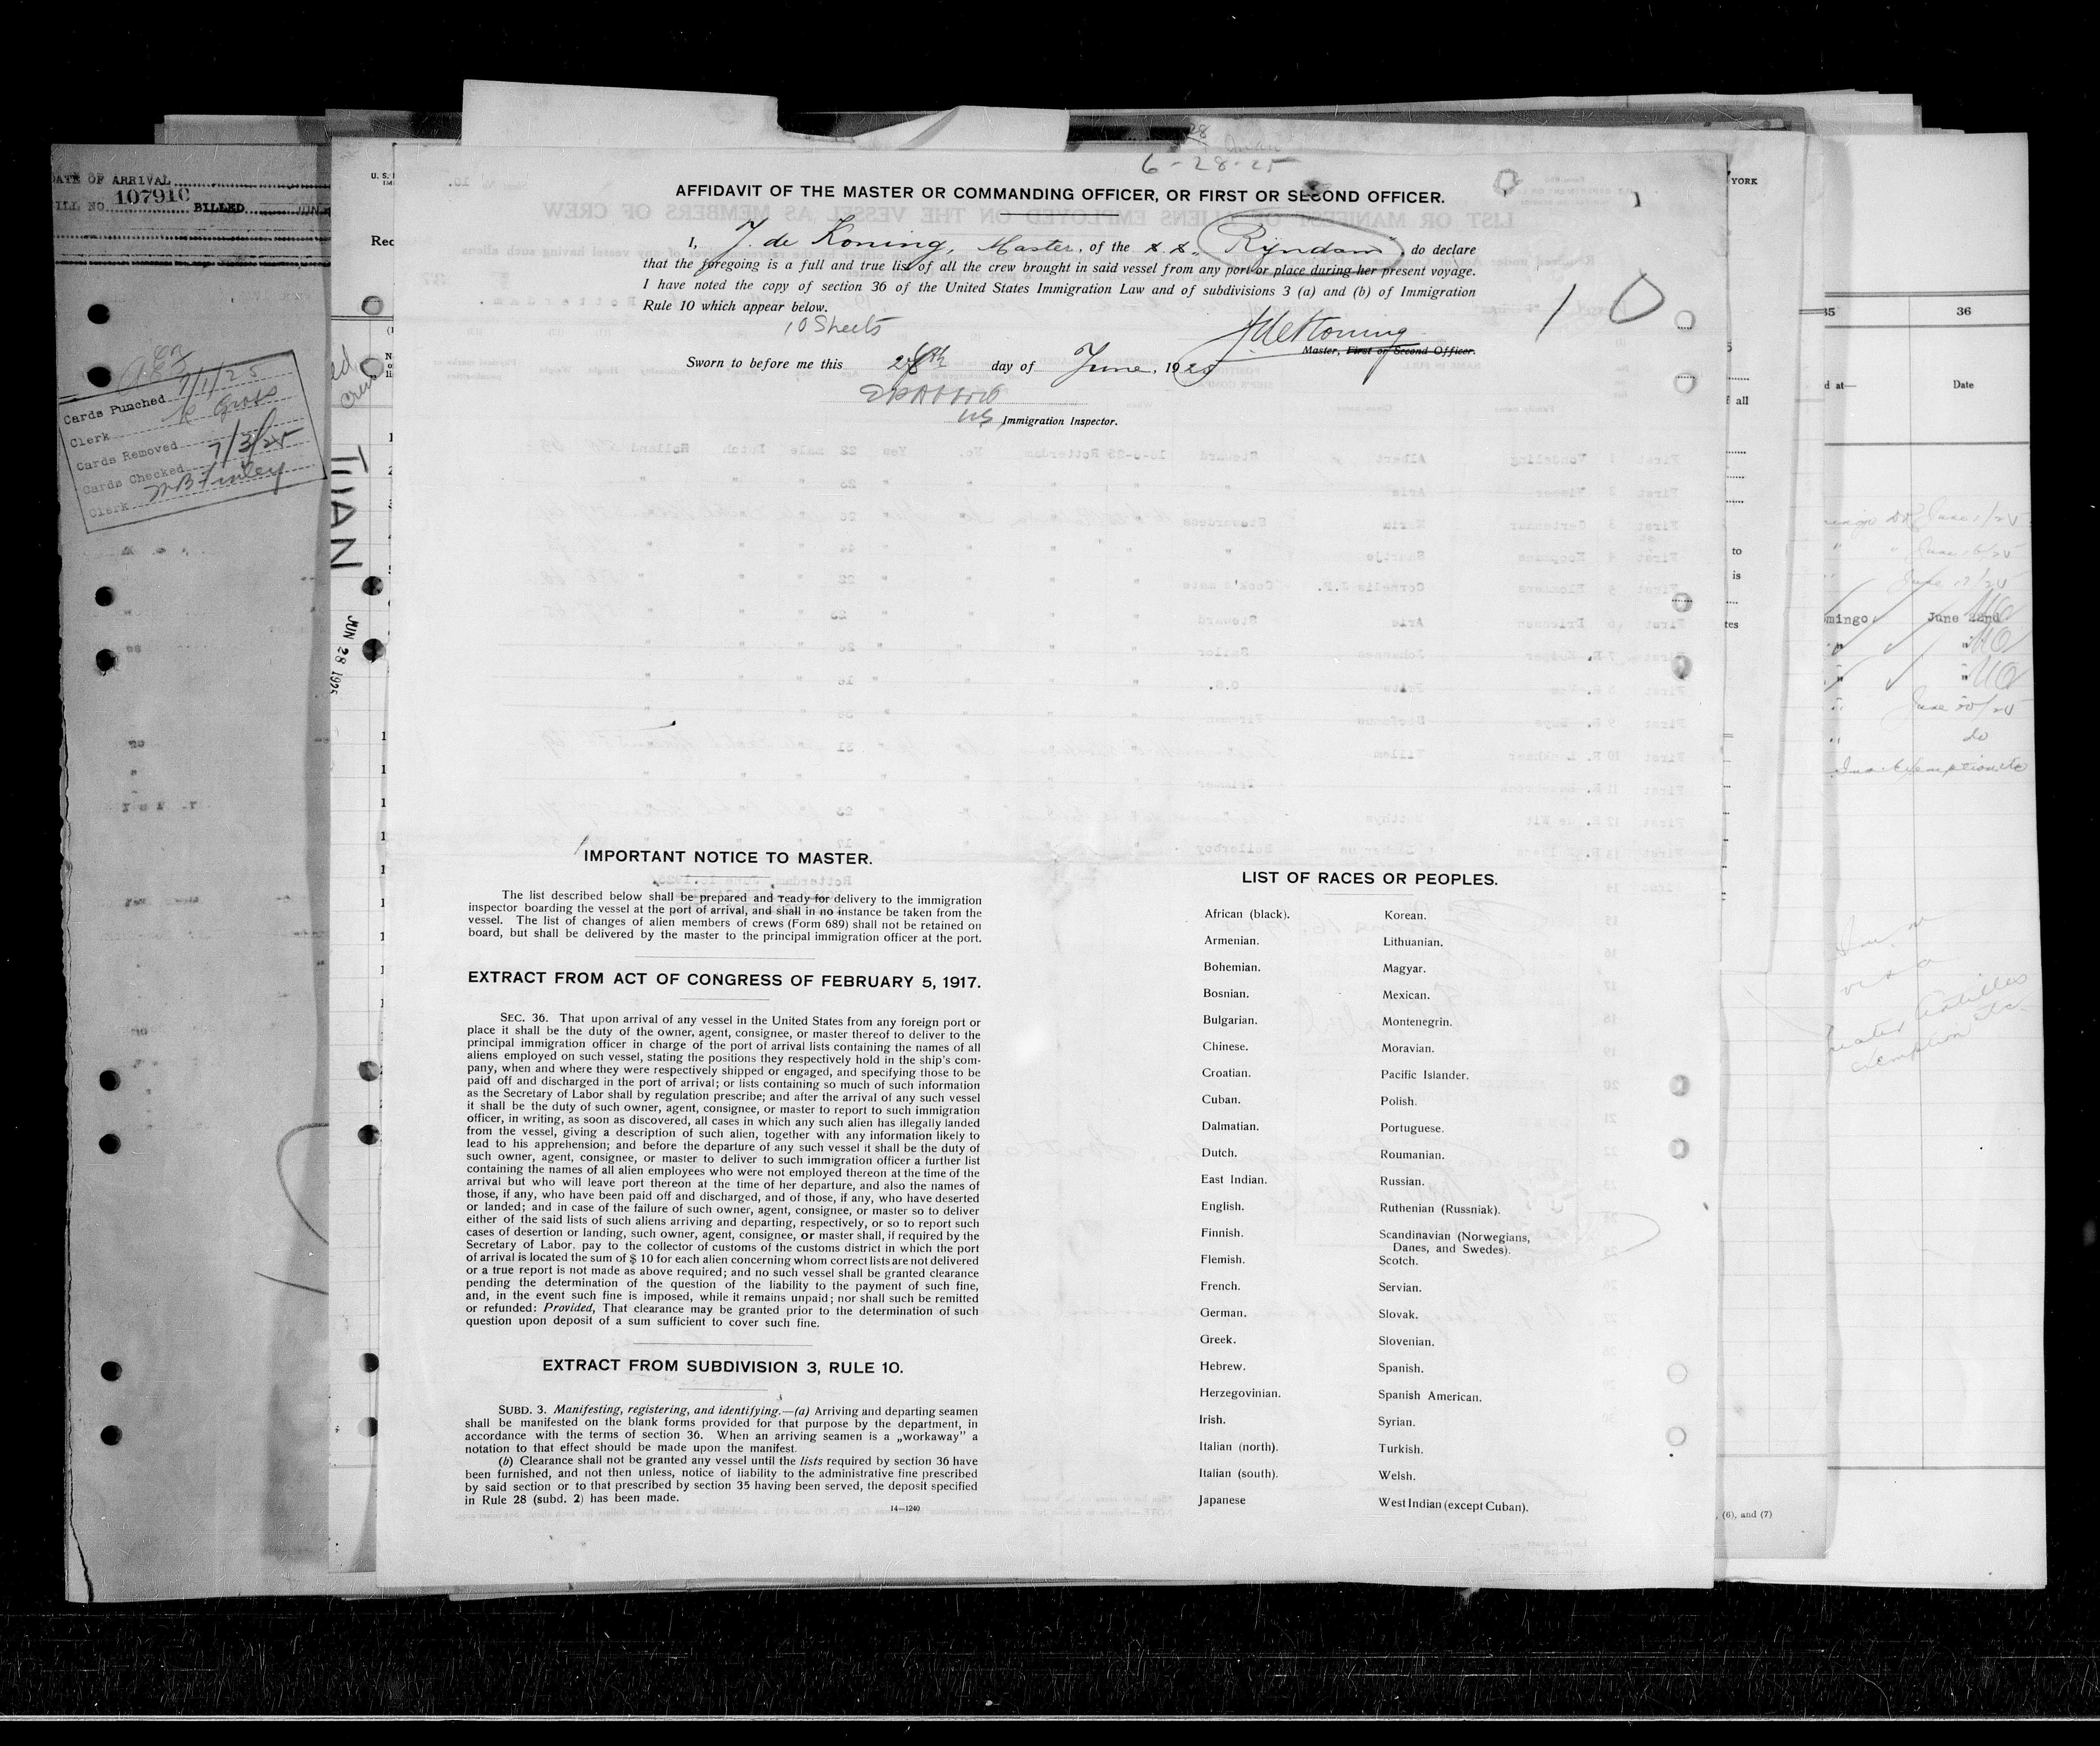 6-28-25
AFFIDAVIT OF THE MASTER OR COMMANDING OFFICER, OR FIRST OR SECOND OFFICER.
I, J. de Koning, Master, of the s.s. "Ryndam", do declare
that the foregoing is a full and true list of all the crew brought in said vessel from any port or place during her present voyage.
I have noted the copy of section 36 of the United States Immigration Law and of subdivisions 3 (a) and (b) of Immigration
Rule 10 which appear below.
10 Sheets
J de Koning
Master, First or Second Officer.
10
Sworn to before me this 28th day of June, 1925
US Immigration Inspector.
IMPORTANT NOTICE TO MASTER.
The list described below shall be prepared and ready for delivery to the immigration
inspector boarding the vessel at the port of arrival, and shall in no instance be taken from the
vessel. The list of changes of alien members of crews (Form 689) shall not be retained on
board, but shall be delivered by the master to the principal immigration officer at the port.
EXTRACT FROM ACT OF CONGRESS OF FEBRUARY 5, 1917.
SEC. 36. That upon arrival of any vessel in the United States from any foreign port or
place it shall be the duty of the owner, agent, consignee, or master thereof to deliver to the
principal immigration officer in charge of the port of arrival lists containing the names of all
aliens employed on such vessel, stating the positions they respectively hold in the ship's com-
pany, when and where they were respectively shipped or engaged, and specifying those to be
paid off and discharged in the port of arrival; or lists containing so much of such information
as the Secretary of Labor shall by regulation prescribe; and after the arrival of any such vessel
it shall be the duty of such owner, agent, consignee, or master to report to such immigration
officer, in writing, as soon as discovered, all cases in which any such alien has illegally landed
from the vessel, giving a description of such alien, together with any information likely to
lead to his apprehension; and before the departure of any such vessel it shall be the duty of
such owner, agent, consignee, or master to deliver to such immigration officer a further list
containing the names of all alien employees who were not employed thereon at the time of the
arrival but who will leave port thereon at the time of her departure, and also the names of
those, if any, who have been paid off and discharged, and of those, if any, who have deserted
or landed; and in case of the failure of such owner, agent, consignee, or master so to deliver
either of the said lists of such aliens arriving and departing, respectively, or so to report such
cases of desertion or landing, such owner, agent, consignee, or master shall, if required by the
Secretary of Labor, pay to the collector of customs of the customs district in which the port
of arrival is located the sum of $ 10 for each alien concerning whom correct lists are not delivered
or a true report is not made as above required; and no such vessel shall be granted clearance
pending the determination of the question of the liability to the payment of such fine,
and, in the event such fine is imposed, while it remains unpaid; nor shall such be remitted
or refunded: Provided, That clearance may be granted prior to the determination of such
question upon deposit of a sum sufficient to cover such fine.
EXTRACT FROM SUBDIVISION 3, RULE 10.
SUBD. 3. Manifesting, registering, and identifying.—(a) Arriving and departing seamen
shall be manifested on the blank forms provided for that purpose by the department, in
accordance with the terms of section 36. When an arriving seamen is a „workaway" a
notation to that effect should be made upon the manifest.
(b) Clearance shall not be granted any vessel until the lists required by section 36 have
been furnished, and not then unless, notice of liability to the administrative fine prescribed
by said section or to that prescribed by section 35 having been served, the deposit specified
in Rule 28 (subd. 2) has been made.
14—1240
LIST OF RACES OR PEOPLES.
African (black). Korean.
Armenian. Lithuanian.
Bohemian. Magyar.
Bosnian. Mexican.
Bulgarian. Montenegrin.
Chinese. Moravian.
Croatian. Pacific Islander.
Cuban. Polish.
Dalmatian. Portuguese.
Dutch. Roumanian.
East Indian. Russian.
English. Ruthenian (Russniak).
Finnish. Scandinavian (Norwegians,
Danes, and Swedes).
Flemish. Scotch.
French. Servian.
German. Slovak.
Greek. Slovenian.
Hebrew. Spanish.
Herzegovinian. Spanish American.
Irish. Syrian.
Italian (north). Turkish.
Italian (south). Welsh.
Japanese West Indian (except Cuban).
DATE OF ARRIVAL
BILL NO. 107910 BILLED
Cards Punched 7/1/25
Clerk K Gross
Cards Removed
Cards Checked 7/3/25
Clerk MB Finley
JUN 28 1925
YORK
36
d at—
Date
mingo June 22nd
, (6), and (7)